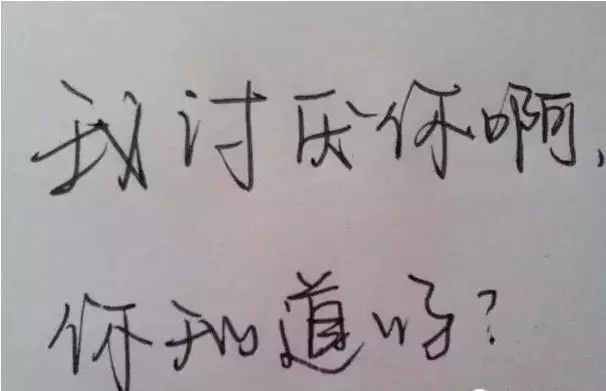 我讨厌你啊,
你知道吗?